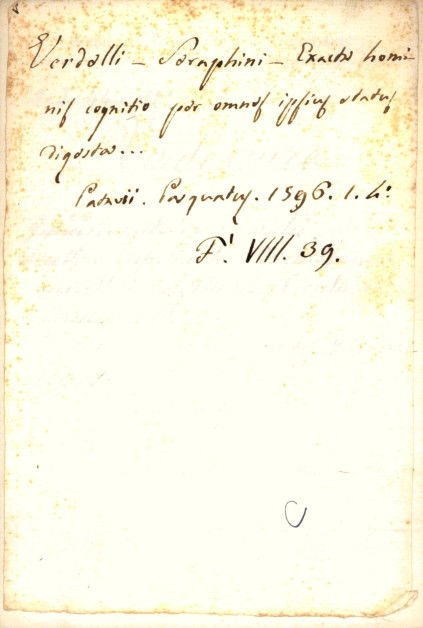 Verdelli - Seraphini - Exacta homi-
nis cognitio per omnes ipsius status
digesta...
Patavii. Pasquatus. 1596. 1. 4.°
F.' VIII. 39.